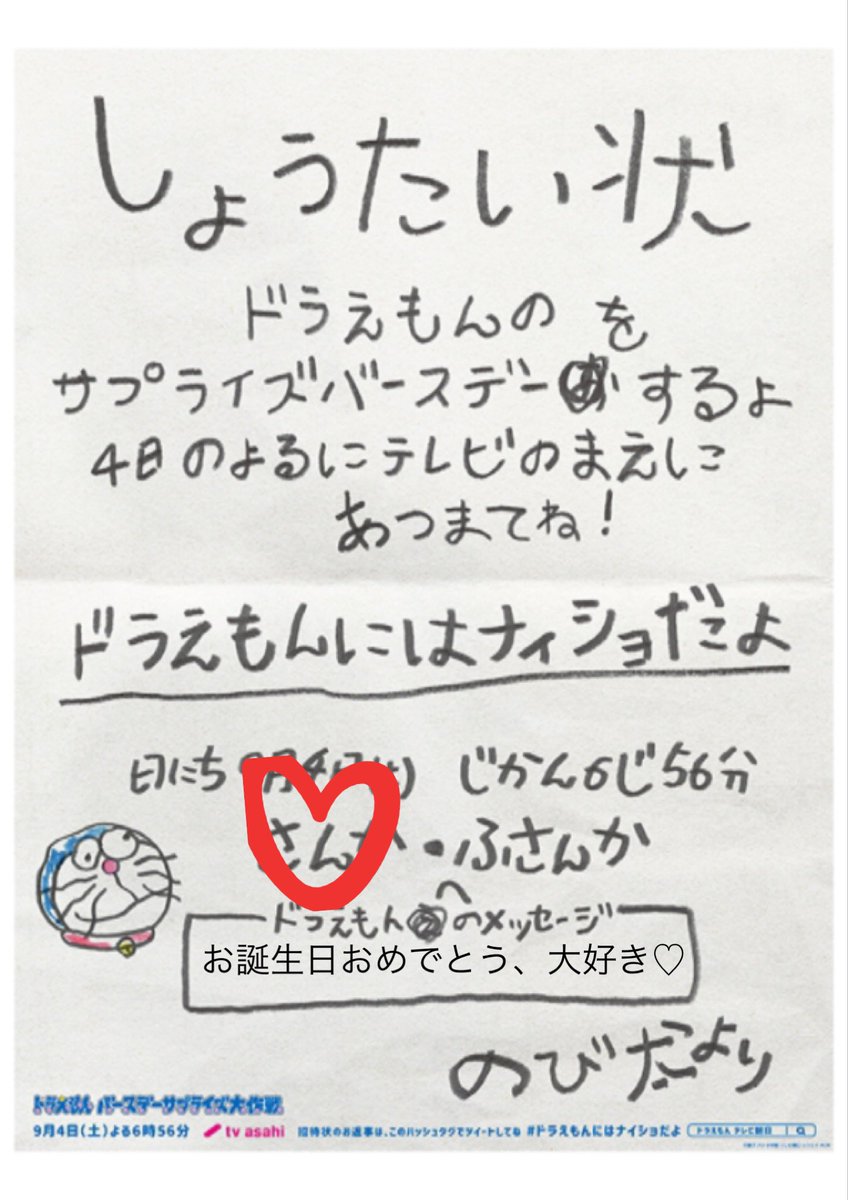 しょうたい状
ドラえもんのを
サプライズバースデーするよ
4日のよるにテレビのまえに
あつまてね！
ドラえもんにはナイショだよ
日にち 9月4日(土) じかん6じ56分
さんか・ふさんか
ドラえもんへのメッセージ
お誕生日おめでとう、大好き♡
のびたより
ドラえもん バースデーサプライズ大作戦
9月4日(土)よる6時56分 tv asahi 招待状のお返事は、このハッシュタグでツイートしてね #ドラえもんにはナイショだよ ドラえもん テレビ朝日